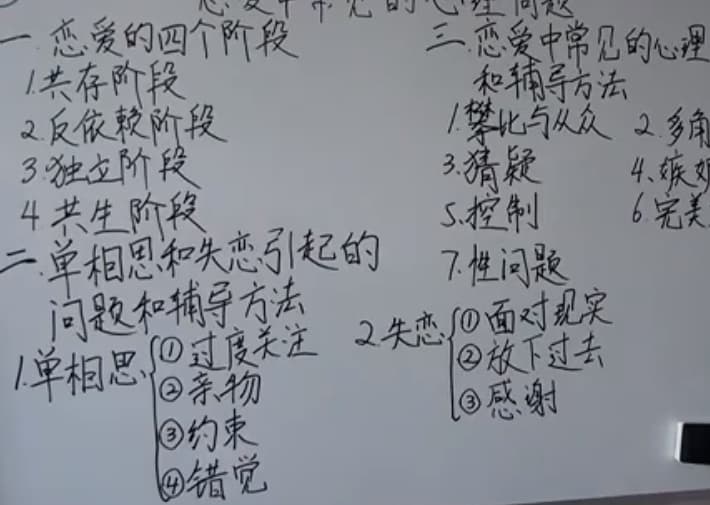 恋爱中常见的心理问题
一.恋爱的四个阶段
1.共存阶段
2.反依赖阶段
3.独立阶段
4.共生阶段
二.单相思和失恋引起的
问题和辅导方法
1.单相思
①过度关注
②亲物
③约束
④错觉
2.失恋
①面对现实
②放下过去
③感谢
三.恋爱中常见的心理
和辅导方法
1.攀比与从众 2.多角
3.猜疑 4.嫉妒
5.控制 6.完美
7.性问题